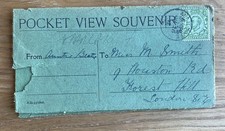 POCKET VIEW SOUVENIR
From Auntie Beat, To Miss M. Smith
9 Houston Rd
Forest Hill
London